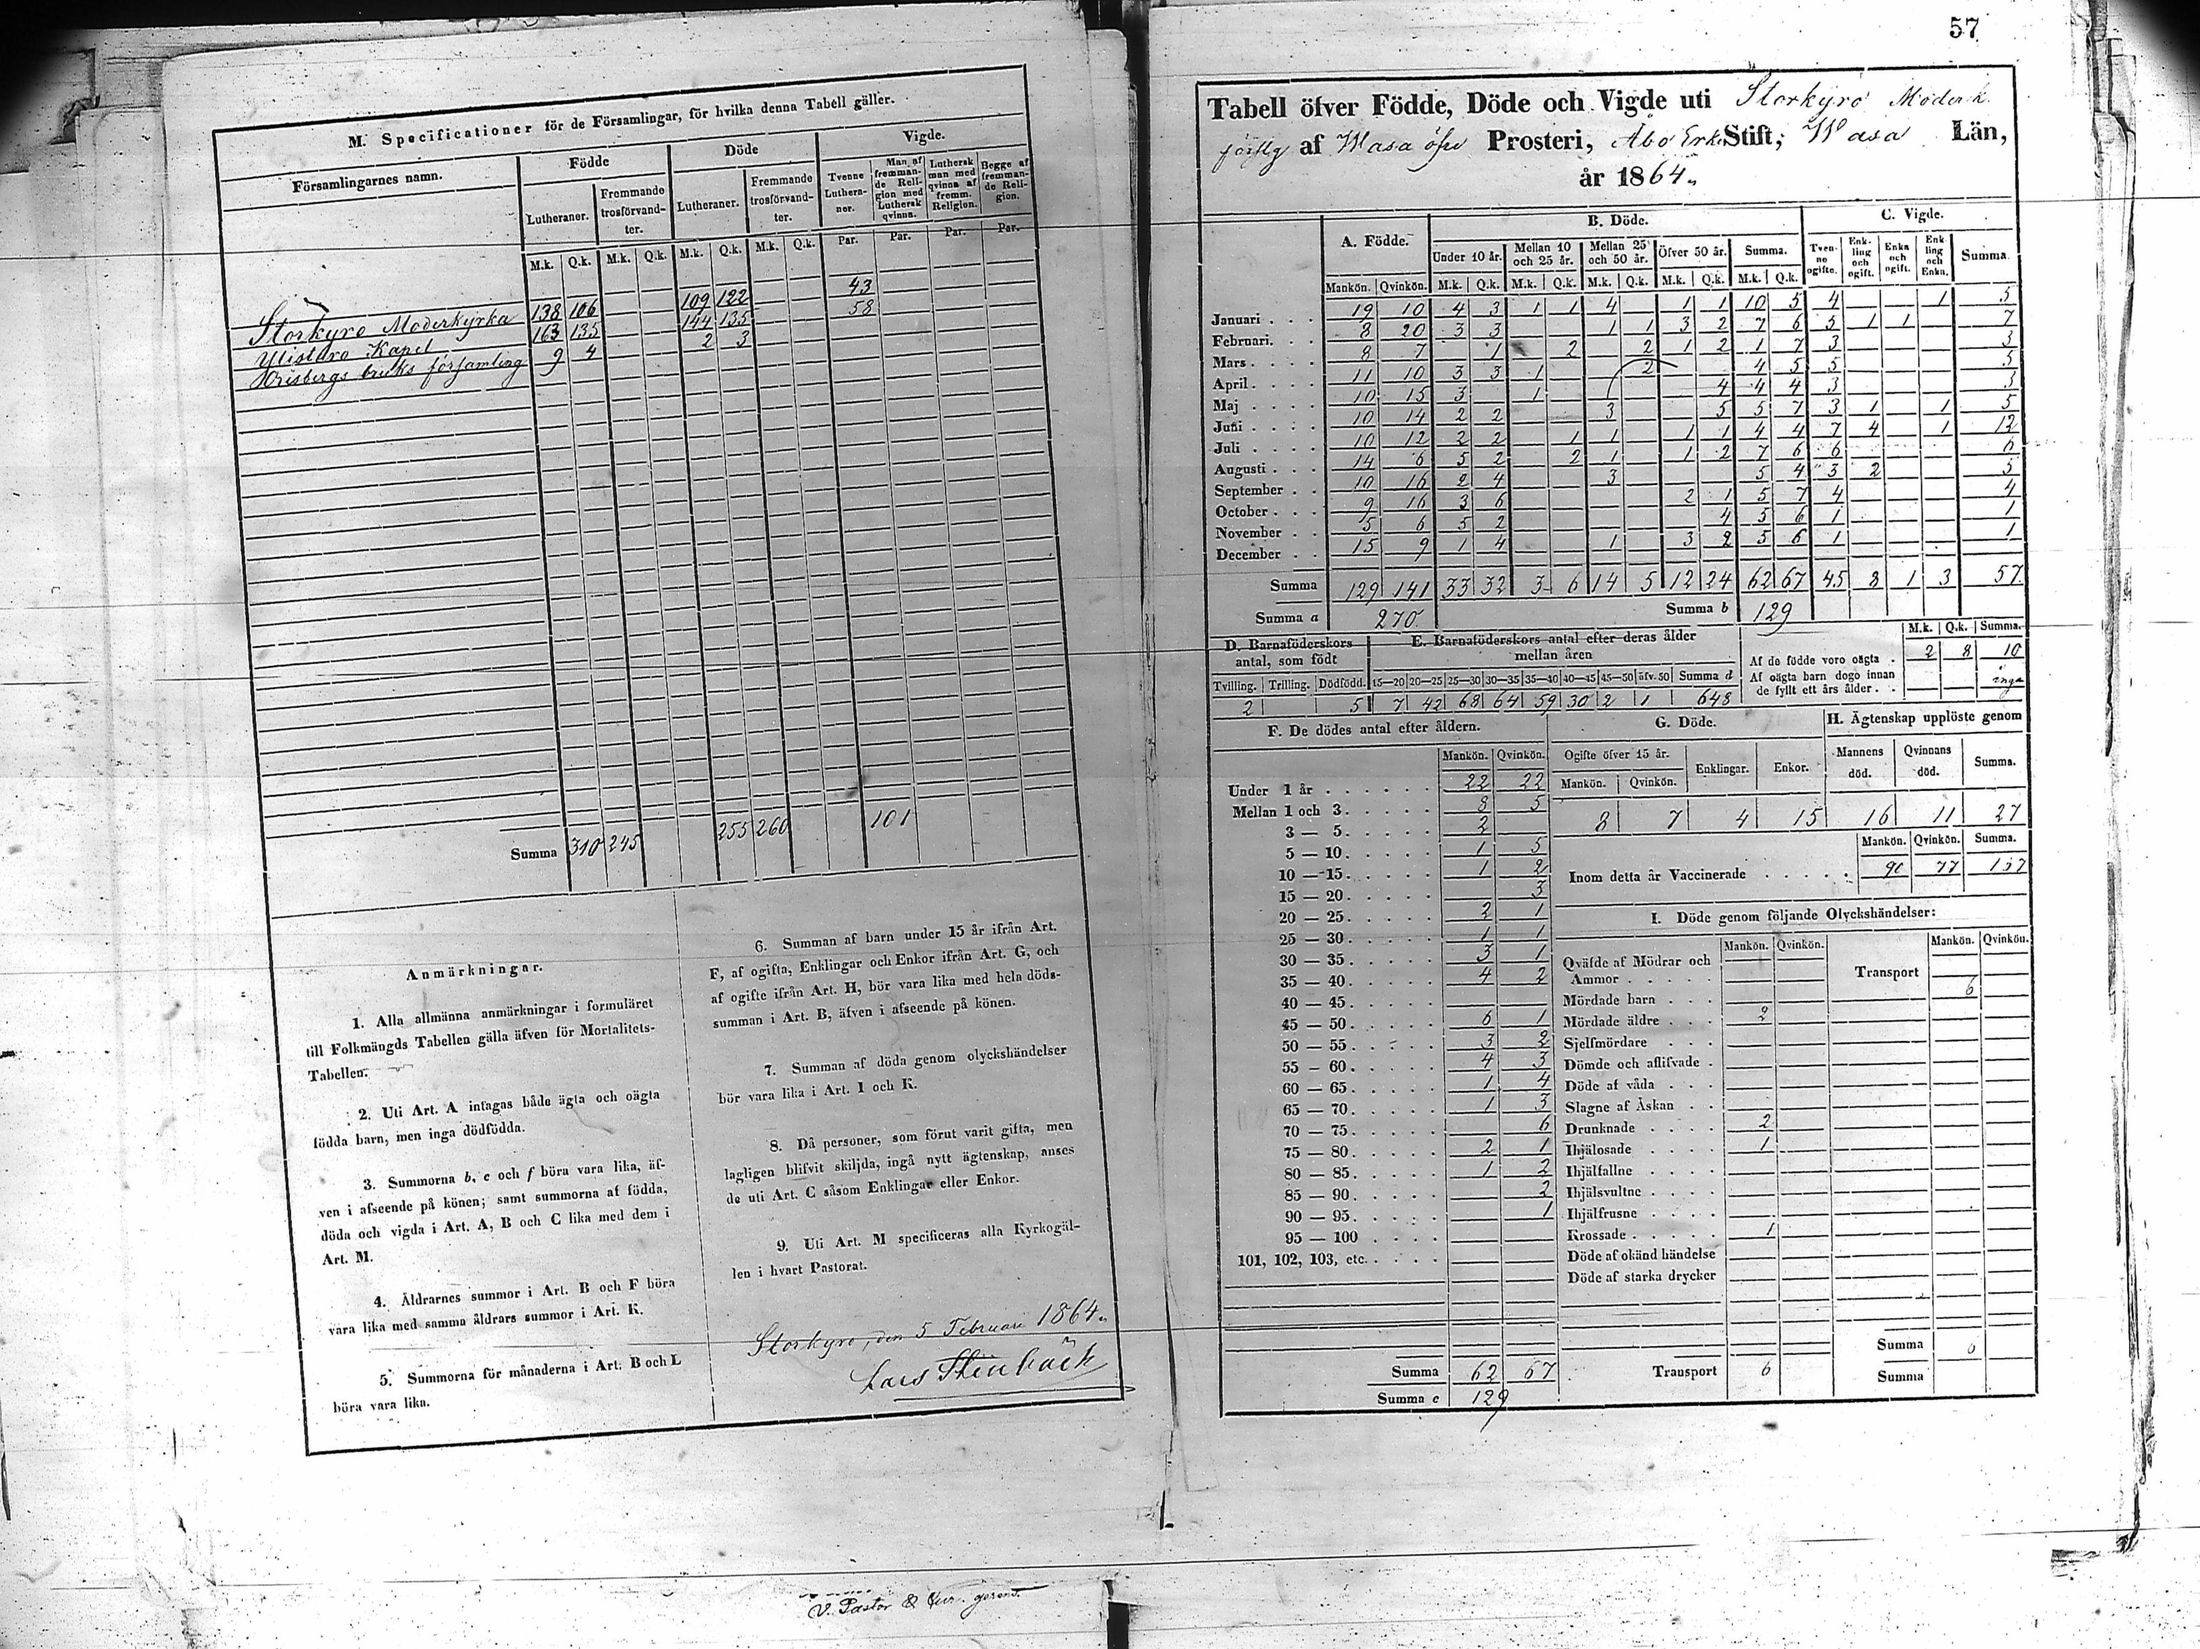 57
M. Specificationer för de Församlingar, för hvilka denna Tabell gäller.
Församlingarnes namn.
Födde
Döde
Vigde.
Lutheraner.
Fremmande trosförvandter.
Lutheraner.
Fremmande trosförvandter.
Tvenne Lutheraner.
Man af fremmande Religion med Luthersk qvinna.
Luthersk man med qvinna af fremm. Religion.
Begge af fremmande Religion.
M.k. Q.k. M.k. Q.k. M.k. Q.k. M.k. Q.k. Par. Par. Par. Par.
Storkyro Moderkyrka 138 106 109 122 43
Ylistaro Kapel 163 135 144 135 58
Orisbergs bruks församling 9 4 2 3
Summa 310 245 255 260 101
Anmärkningar.
1. Alla allmänna anmärkningar i formuläret
till Folkmängds Tabellen gälla äfven för Mortalitets-
Tabellen.
2. Uti Art. A intagas både ägta och oägta
födda barn, men inga dödfödda.
3. Summorna b, c och f böra vara lika, äf-
ven i afseende på könen; samt summorna af födda,
döda och vigda i Art. A, B och C lika med dem i
Art. M.
4. Åldrarnes summor i Art. B och F böra
vara lika med samma åldrars summor i Art. K.
5. Summorna för månaderna i Art. B och L
böra vara lika.
6. Summan af barn under 15 år ifrån Art.
F, af ogifta, Enklingar och Enkor ifrån Art. G, och
af ogifte ifrån Art. H, bör vara lika med hela döds-
summan i Art. B, äfven i afseende på könen.
7. Summan af döda genom olyckshändelser
bör vara lika i Art. I och K.
8. Då personer, som förut varit gifta, men
lagligen blifvit skiljda, ingå nytt ägtenskap, anses
de uti Art. C såsom Enklingar eller Enkor.
9. Uti Art. M specificeras alla Kyrkogäl-
len i hvart Pastorat.
Storkyro, den 5 Februari 1864.
Lars Stenbäck
V. Pastor &
Tabell öfver Födde, Döde och Vigde uti Storkyro Moderk.
af Wasa Prosteri, Åbo Erke Stift; Wasa Län,
år 1864.
A. Födde.
B. Döde.
C. Vigde.
Under 10 år. Mellan 10 och 25 år. Mellan 25 och 50 år. Öfver 50 år. Summa.
Tvenne ogifte. Enkling och ogift. Enka och ogift. Enkling och Enka. Summa.
Mankön. Qvinkön. M.k. Q.k. M.k. Q.k. M.k. Q.k. M.k. Q.k. M.k. Q.k.
Januari 19 10 4 3 1 1 4 1 1 10 5 4 1 5
Februari 8 20 3 3 1 1 3 2 7 6 5 1 1 7
Mars 8 7 1 2 2 1 2 1 7 3 3
April 11 10 3 3 1 2 4 5 5 5
Maj 10 15 3 1 4 4 4 3 3
Juni 10 14 2 2 3 5 5 7 3 1 1 5
Juli 10 12 2 2 1 1 1 1 4 4 7 4 1 12
Augusti 14 6 5 2 2 1 1 2 7 6 6 6
September 10 16 2 4 3 5 4 3 2 5
October 9 16 3 6 2 1 5 7 4 4
November 5 6 5 2 4 5 6 1 1
December 15 9 1 4 1 3 2 5 6 1 1
Summa 129 141 33 32 3 6 14 5 12 24 62 67 45 8 1 3 57
Summa a 270
Summa b 129
D. Barnaföderskors antal, som födt
Tvilling. Trilling. Dödfödd.
2 5
E. Barnaföderskors antal efter deras ålder mellan åren
15—20 20—25 25—30 30—35 35—40 40—45 45—50 öfv. 50 Summa d
7 42 68 64 59 30 2 1 648
M.k. Q.k. Summa.
Af de födde voro oägta . 2 8 10
Af oägta barn dogo innan de fyllt ett års ålder . . inga
F. De dödes antal efter åldern.
Mankön. Qvinkön.
Under 1 år 22 22
Mellan 1 och 3 8 5
3 — 5 2
5 — 10 1 5
10 — 15 1 2
15 — 20 3
20 — 25 2 1
25 — 30 1 1
30 — 35 3 1
35 — 40 4 2
40 — 45
45 — 50 6 1
50 — 55 3 2
55 — 60 4 3
60 — 65 1 4
65 — 70 1 3
70 — 75 6
75 — 80 2 1
80 — 85 1 2
85 — 90 2
90 — 95 1
95 — 100
101, 102, 103, etc.
Summa 62 67
Summa c 129
G. Döde.
Ogifte öfver 15 år. Enklingar. Enkor.
Mankön. Qvinkön.
8 7 4 15
H. Ägtenskap upplöste genom
Mannens död. Qvinnans död. Summa.
16 11 27
Mankön. Qvinkön. Summa.
Inom detta år Vaccinerade 90 77
I. Döde genom följande Olyckshändelser:
Mankön. Qvinkön. Mankön. Qvinkön.
Qväfde af Mödrar och Ammor
Mördade barn
Mördade äldre 2
Sjelfmördare
Dömde och aflifvade
Döde af våda
Slagne af Åskan
Drunknade 2
Ihjälosade 1
Ihjälfallne
Ihjälsvultne
Ihjälfrusne
Krossade 1
Döde af okänd händelse
Döde af starka drycker
Transport 6
Transport 6
Summa 6
Summa